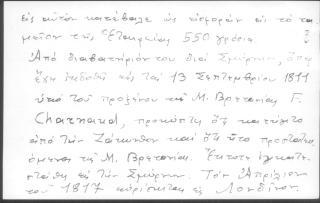 εἰς αὐτὸν κατέβαλε ὡς εἰσφορὰν εἰς τὸ τα-
μεῖον τῆς Ἑταιρείας 550 γρόσια.
Ἀπὸ διαβατήριόν του διὰ Σμύρνην, ὅπερ
ἔχει ἐκδοθῆ εἰς τὰς 13 Σεπτεμβρίου 1811
ὑπὸ τοῦ προξένου τῆς Μ. Βρετανίας Γ.
προκύπτει ὅτι κατήγετο
ἀπὸ τὴν Ζάκυνθον καὶ ὅτι ἦτο προστατευ-
όμενος τῆς Μ. Βρετανίας. Ἔκτοτε ἐγκατε-
στάθη εἰς τὴν Σμύρνην. Τὸν Ἀπρίλιον
τοῦ 1817 εὑρίσκεται εἰς Λονδῖνον.